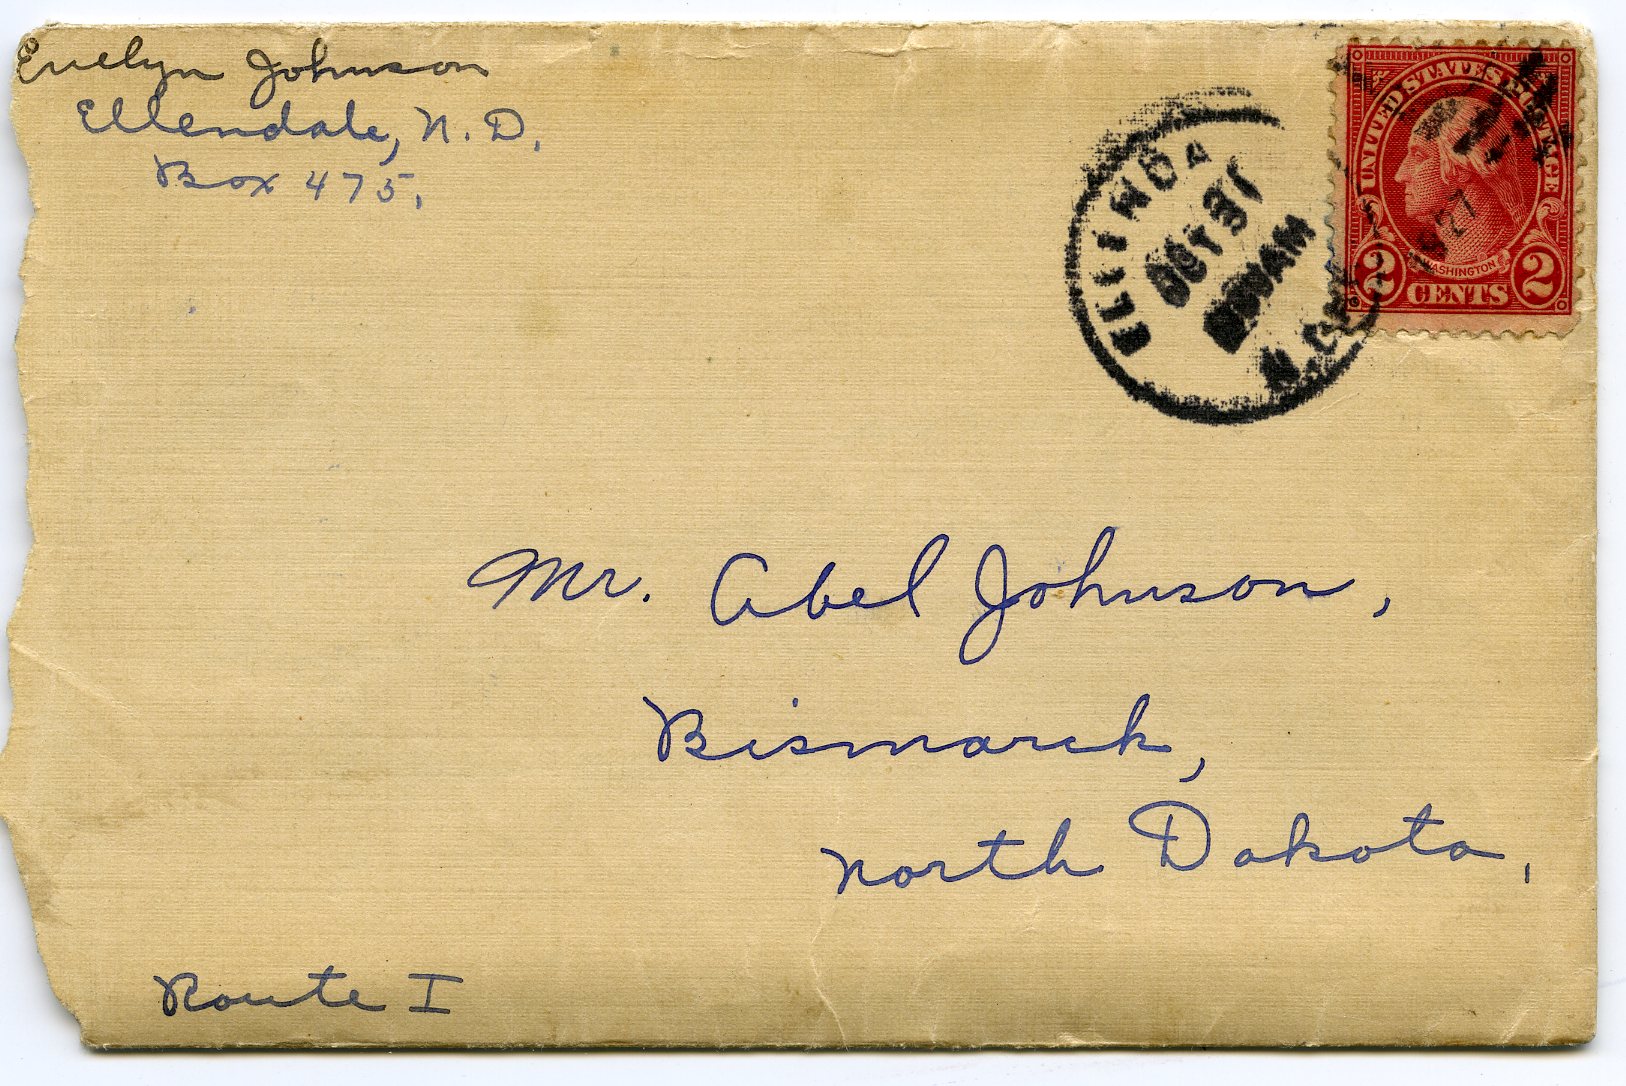 Evelyn Johnson
Ellendale, N. D.
Box 475.
OCT 31
AM
N.
1927
UNITED STATES POSTAGE
WASHINGTON
2 CENTS 2
Mr. Abel Johnson,
Bismarck,
North Dakota,
Route I